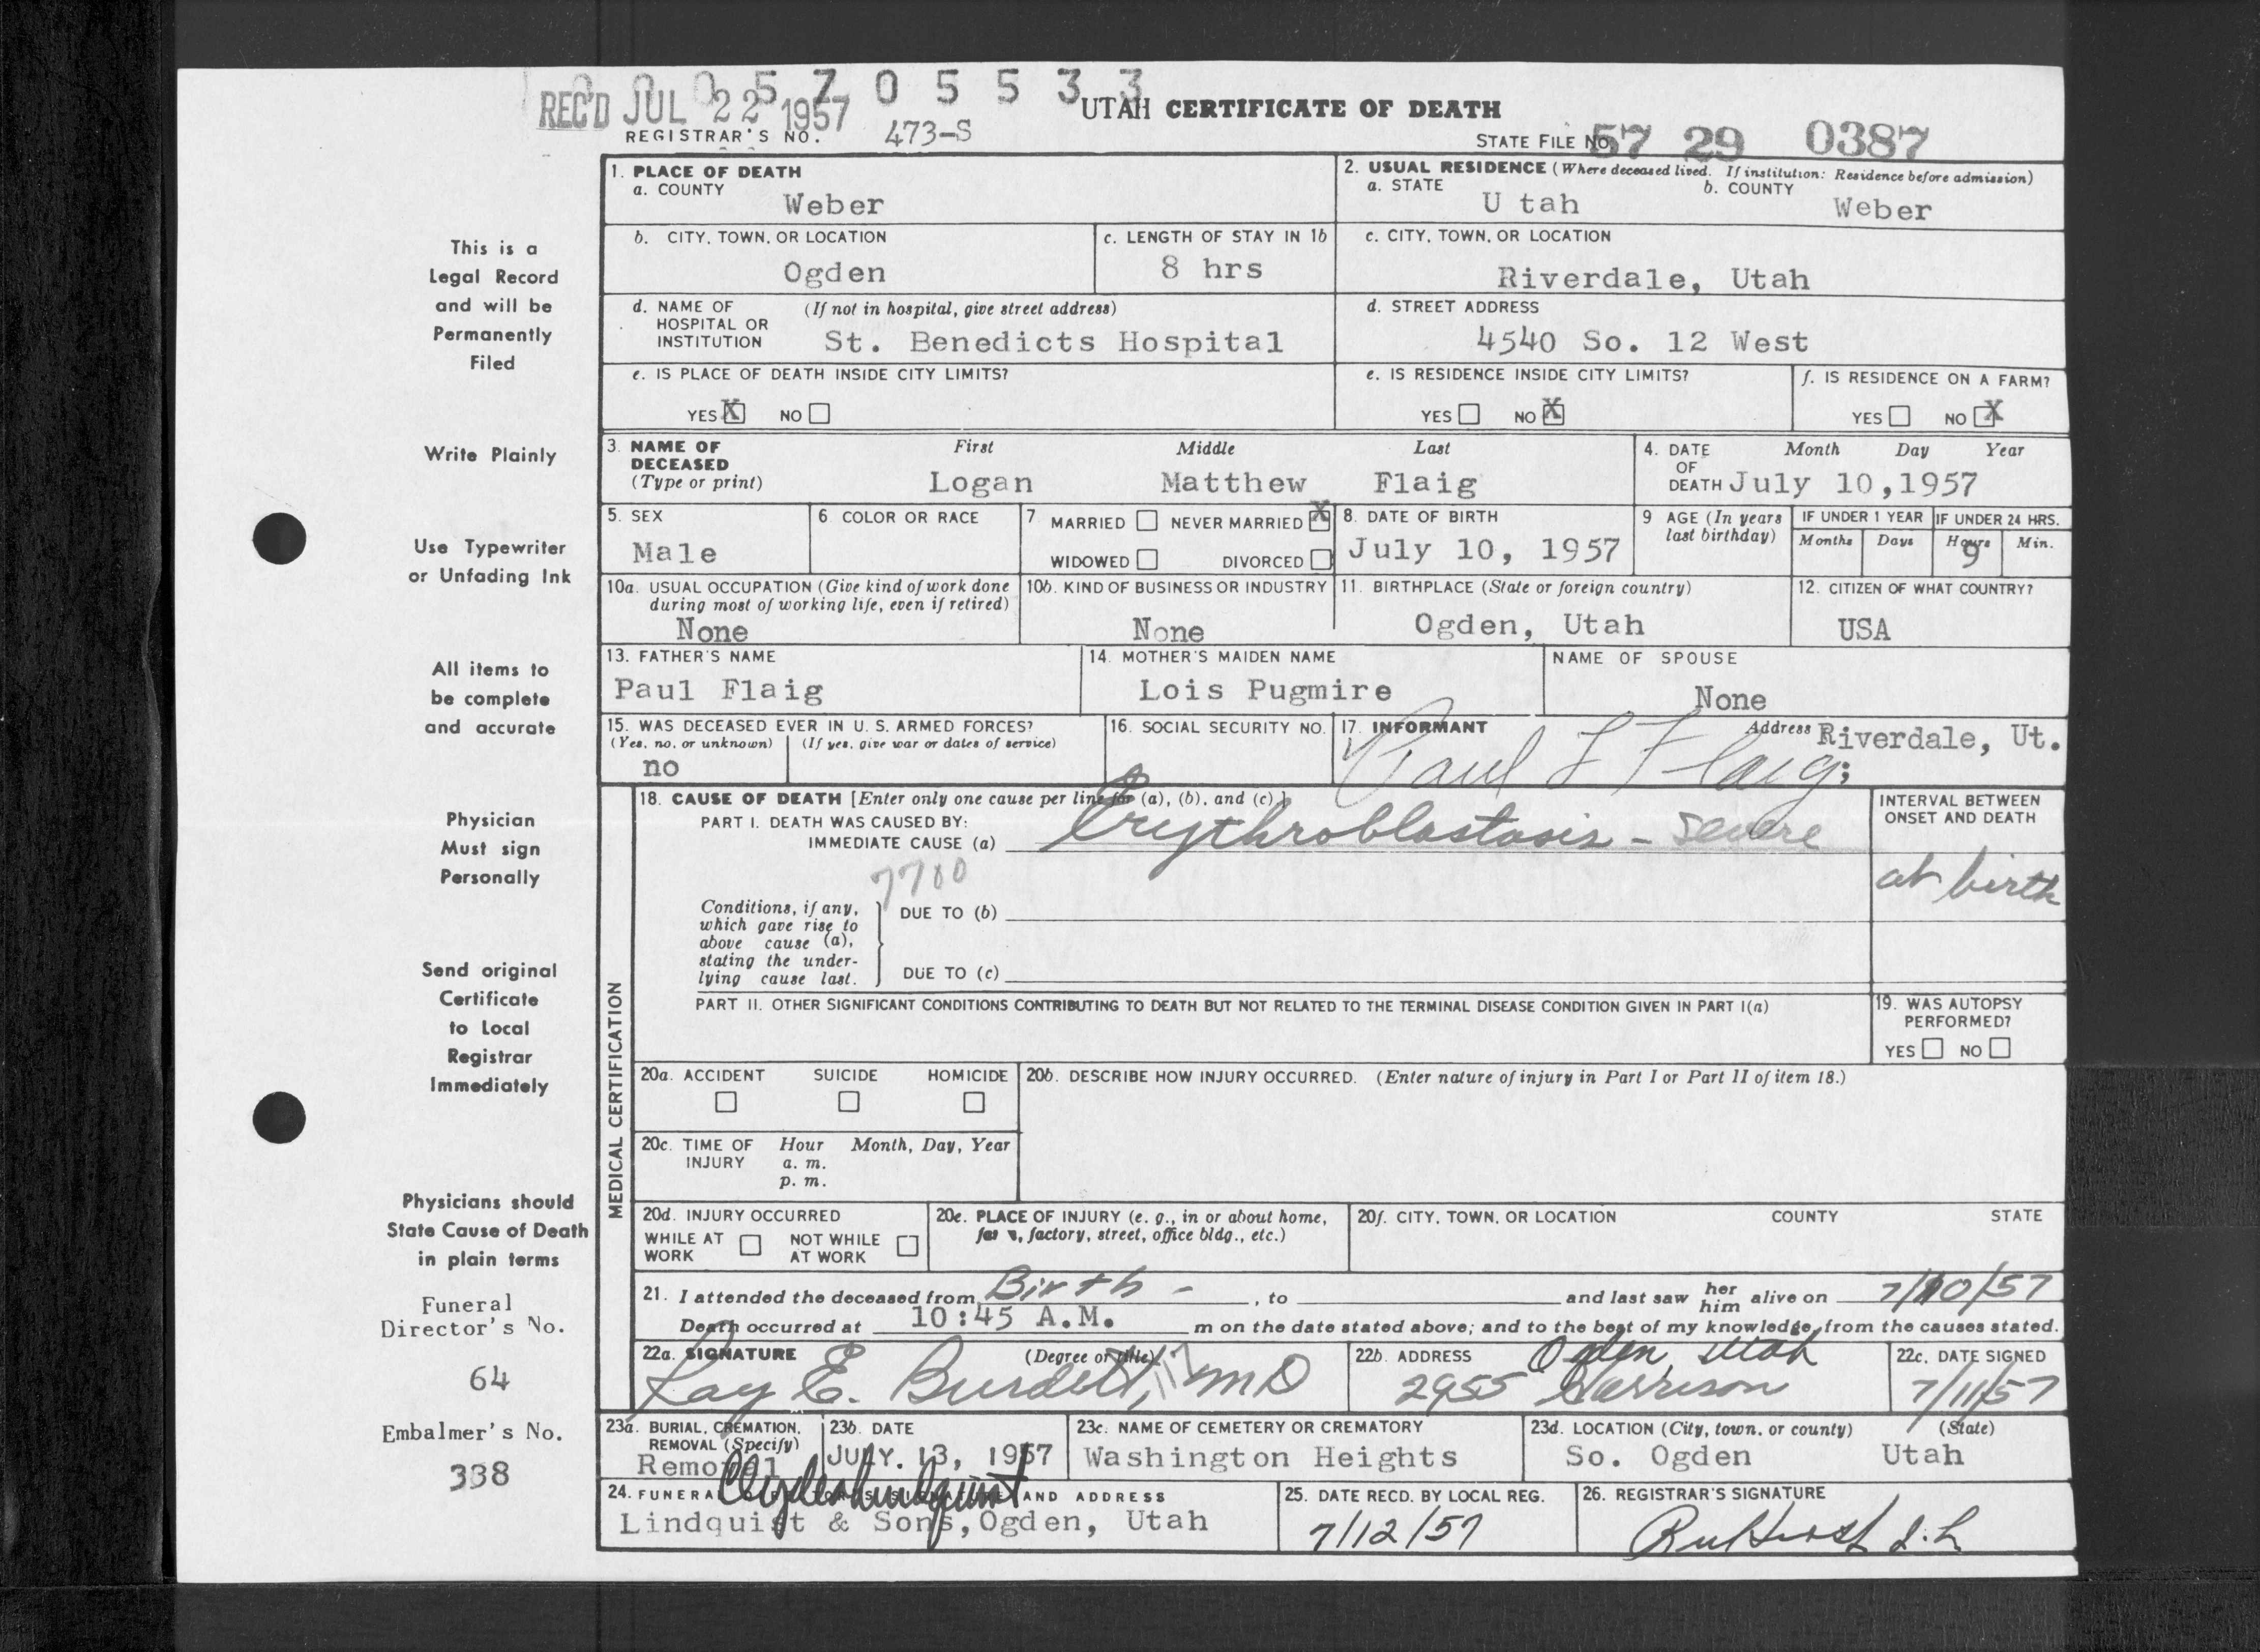 0 0 0 5 7 0 5 5 3 3
REC'D JUL 22 1957
UTAH CERTIFICATE OF DEATH
REGISTRAR'S NO. 473-S
STATE FILE NO. 57 29 0387
1. PLACE OF DEATH
a. COUNTY
Weber
2. USUAL RESIDENCE (Where deceased lived. If institution: Residence before admission)
a. STATE
U tah
b. COUNTY
Weber
b. CITY, TOWN, OR LOCATION
Ogden
c. LENGTH OF STAY IN 1b
8 hrs
c. CITY, TOWN, OR LOCATION
Riverdale, Utah
d. NAME OF HOSPITAL OR INSTITUTION
(If not in hospital, give street address)
St. Benedicts Hospital
d. STREET ADDRESS
4540 So. 12 West
e. IS PLACE OF DEATH INSIDE CITY LIMITS?
YES X NO
e. IS RESIDENCE INSIDE CITY LIMITS?
YES NO X
f. IS RESIDENCE ON A FARM?
YES NO X
3. NAME OF DECEASED (Type or print)
First Middle Last
Logan Matthew Flaig
4. DATE OF DEATH
Month Day Year
July 10,1957
5. SEX
Male
6 COLOR OR RACE
7 MARRIED NEVER MARRIED X
WIDOWED DIVORCED
8. DATE OF BIRTH
July 10, 1957
9 AGE (In years last birthday)
IF UNDER 1 YEAR
Months Days
IF UNDER 24 HRS.
Hours Min.
9
10a. USUAL OCCUPATION (Give kind of work done during most of working life, even if retired)
None
10b. KIND OF BUSINESS OR INDUSTRY
None
11. BIRTHPLACE (State or foreign country)
Ogden, Utah
12. CITIZEN OF WHAT COUNTRY?
USA
13. FATHER'S NAME
Paul Flaig
14. MOTHER'S MAIDEN NAME
Lois Pugmire
NAME OF SPOUSE
None
15. WAS DECEASED EVER IN U. S. ARMED FORCES?
(Yes, no, or unknown) (If yes, give war or dates of service)
no
16. SOCIAL SECURITY NO.
17. INFORMANT
Paul L Flaig;
Address Riverdale, Ut.
MEDICAL CERTIFICATION
18. CAUSE OF DEATH [Enter only one cause per line for (a), (b), and (c).]
PART I. DEATH WAS CAUSED BY:
IMMEDIATE CAUSE (a) Erythroblastosis - severe
INTERVAL BETWEEN ONSET AND DEATH
at birth
7700
Conditions, if any, which gave rise to above cause (a), stating the underlying cause last.
DUE TO (b)
DUE TO (c)
PART II. OTHER SIGNIFICANT CONDITIONS CONTRIBUTING TO DEATH BUT NOT RELATED TO THE TERMINAL DISEASE CONDITION GIVEN IN PART I(a)
19. WAS AUTOPSY PERFORMED?
YES NO
20a. ACCIDENT SUICIDE HOMICIDE
20b. DESCRIBE HOW INJURY OCCURRED. (Enter nature of injury in Part I or Part II of item 18.)
20c. TIME OF INJURY
Hour Month, Day, Year
a. m.
p. m.
20d. INJURY OCCURRED
WHILE AT WORK NOT WHILE AT WORK
20e. PLACE OF INJURY (e. g., in or about home, farm, factory, street, office bldg., etc.)
20f. CITY, TOWN, OR LOCATION COUNTY STATE
21. I attended the deceased from Birth - , to and last saw her him alive on 7/10/57
Death occurred at 10:45 A.M. m on the date stated above; and to the best of my knowledge, from the causes stated.
22a. SIGNATURE (Degree or title)
Ray E. Burdett, MD
22b. ADDRESS
Ogden, Utah
2955 Harrison
22c. DATE SIGNED
7/11/57
23a. BURIAL, CREMATION, REMOVAL (Specify)
Removal
23b. DATE
JULY. 13, 1957
23c. NAME OF CEMETERY OR CREMATORY
Washington Heights
23d. LOCATION (City, town, or county) (State)
So. Ogden Utah
24. FUNERAL DIRECTOR'S SIGNATURE AND ADDRESS
Clyde Lindquist
Lindquist & Sons,Ogden, Utah
25. DATE RECD. BY LOCAL REG.
7/12/57
26. REGISTRAR'S SIGNATURE
This is a
Legal Record
and will be
Permanently
Filed
Write Plainly
Use Typewriter
or Unfading Ink
All items to
be complete
and accurate
Physician
Must sign
Personally
Send original
Certificate
to Local
Registrar
Immediately
Physicians should
State Cause of Death
in plain terms
Funeral
Director's No.
64
Embalmer's No.
338